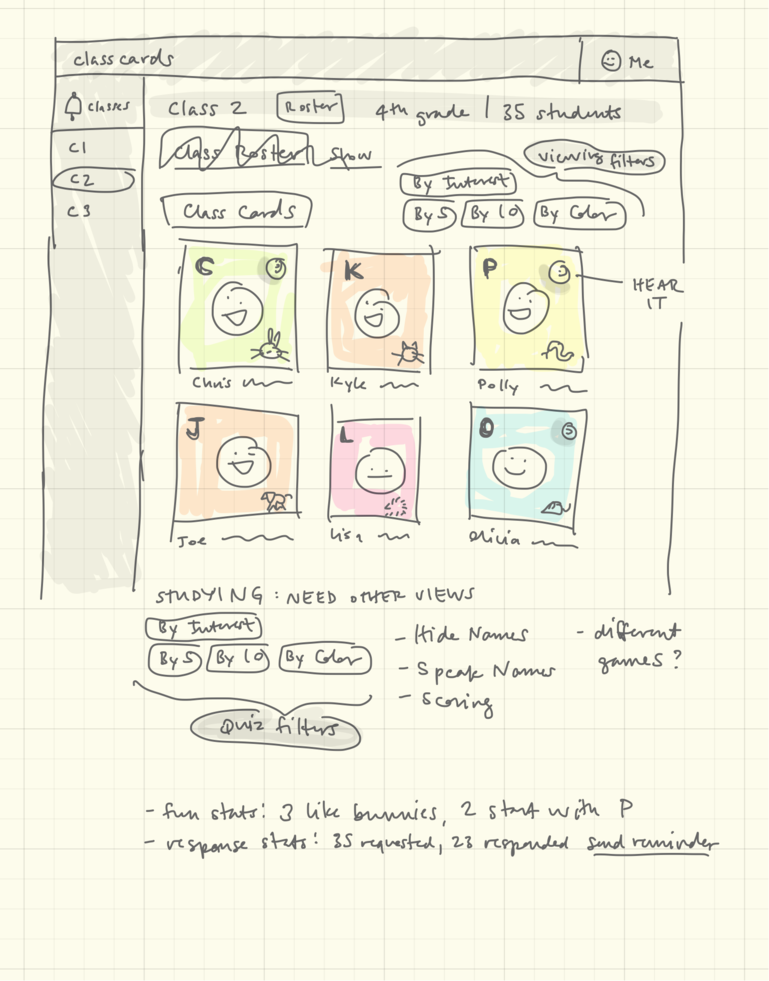 classcards
Me
classes
Class 2 Roster 4th grade | 35 students
C1
Class Roster Show
viewing filters
C2
By Interest
C3
Class Cards
By 5 By 10 By Color
C
K
P
HEAR
IT
Chris
Kyle
Polly
J
L
O
Joe
Lisa
Olicia
STUDYING: NEED OTHER VIEWS
By Interest
By 5 By 10 By Color
Quiz filters
- Hide Names
- Speak Names
- Scoring
- different
games?
- fun stats: 3 like bunnies, 2 start with P
- response stats: 35 requested, 23 responded send reminder